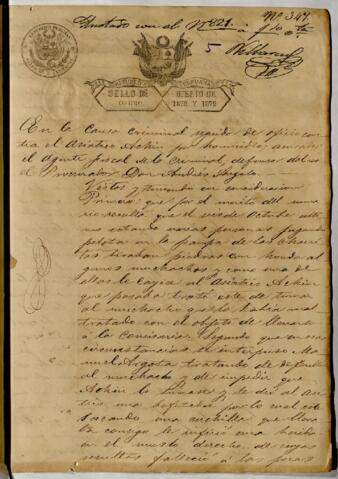 Anotado con el Nº 821. á f. 10
Nº 347.
5
REPUBLICA PERUANA
SELLO DE OFICIO
BIENIO DE 1878 Y 1879
En la Causa Criminal seguida de oficio con
tra el Asiático Achin por homicidio, acusador
el Agente fiscal de lo Criminal, defensor del reo
el Procurador Don Andrés
Vistos y teniendo en consideracion
Primero: que por el mérito del suma
rio resulta que el dos de Octubre ulti
mo estando varias personas jugando
pelota en la pampa de las
tas tiraban piedras con honda al
gunos muchachos y como una de
ellas le cayera al Asiático Achin
que pasaba trató este de tomar
al muchacho que lo habia mal
tratado con el objeto de llevarlo
á la Comisaria. Segundo que en esas
circunstancias se interpuso Ma
nuel Argota tratando de defender
al muchacho y de impedir que
Achin lo llevase y le dió al Asiá
tico una bofetada por lo cual este
sacando una cuchilla que lleva
ba consigo le infirió una herida
en el muslo derecho de cuyas
resultas falleció á las pocas